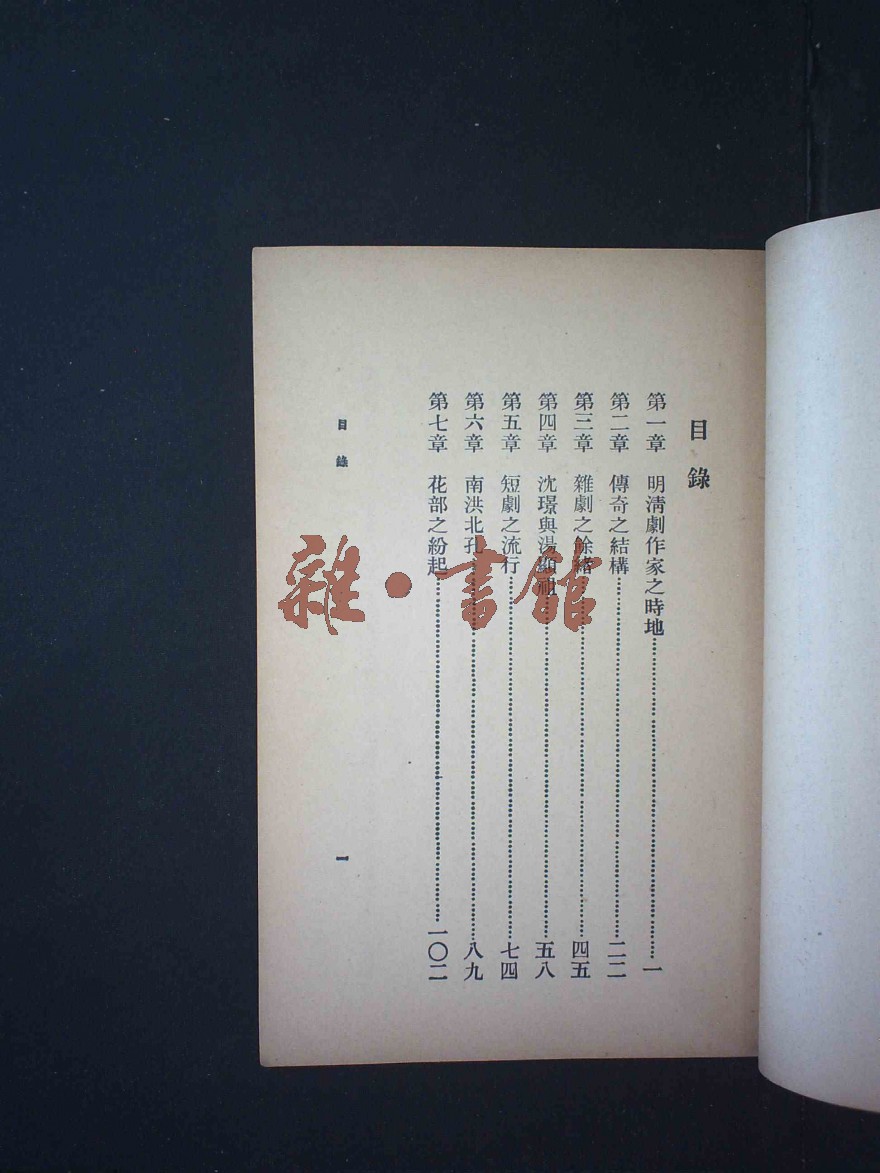 目錄
第一章 明清劇作家之時地……一
第二章 傳奇之結構……二二
第三章 雜劇之餘緒……四五
第四章 沈璟與湯顯祖……五八
第五章 短劇之流行……七四
第六章 南洪北孔……八九
第七章 花部之紛起……一〇二
目錄
一
雜·書館